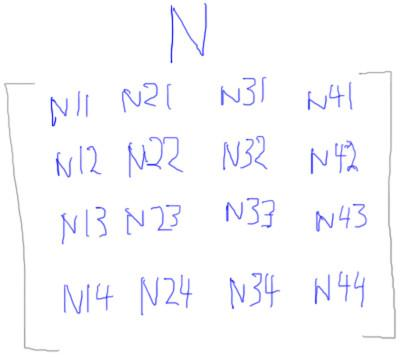 N
N11 N21 N31 N41
N12 N22 N32 N42
N13 N23 N33 N43
N14 N24 N34 N44